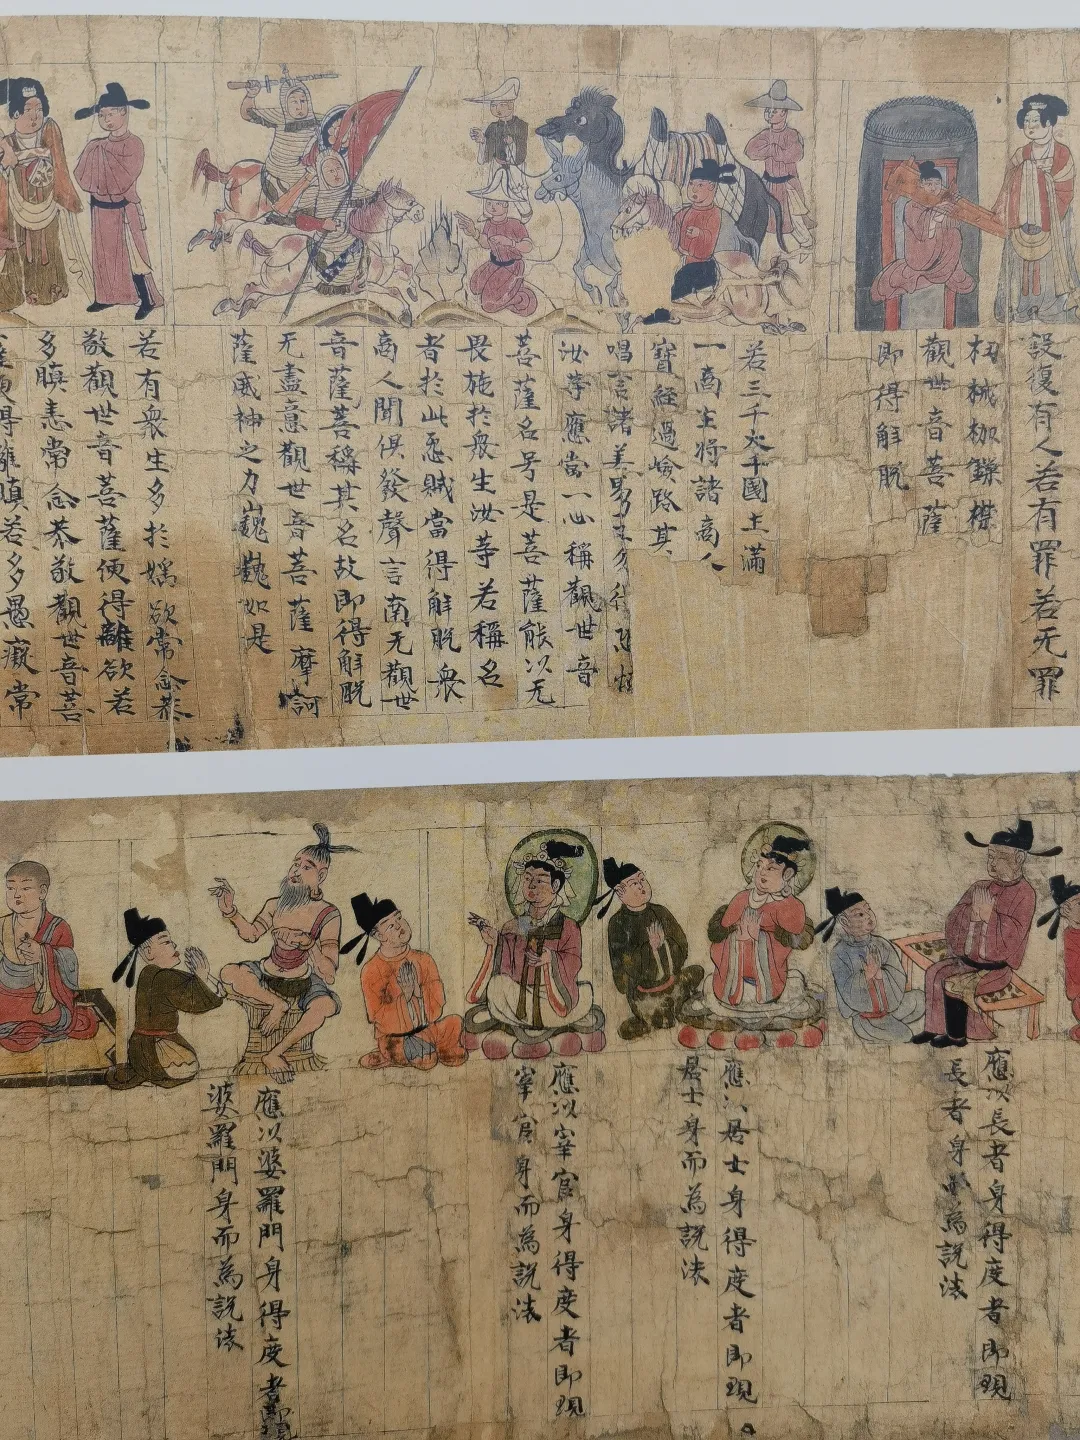 設復有人若有罪若无罪
杻械枷鏁撿
觀世音菩薩
即得解脫
若三千大千國土滿
一商主將諸商人
寶經過嶮路其
唱言諸善男子勿得恐怖
汝等應當一心稱觀世音
菩薩名号是菩薩能以无
畏施於衆生汝等若稱名
者於此惡賊當得解脫衆
商人聞俱發聲言南无觀世
音菩薩稱其名故即得解脫
无盡意觀世音菩薩摩訶
薩威神之力巍巍如是
若有衆生多於婬欲常念恭
敬觀世音菩薩便得離欲若
多瞋恚常念恭敬觀世音菩
薩便得離瞋若多愚癡常
應以長者身得度者即現
長者身而為說法
應以居士身得度者即現
居士身而為說法
應以宰官身得度者即現
宰官身而為說法
應以婆羅門身得度者即現
婆羅門身而為說法